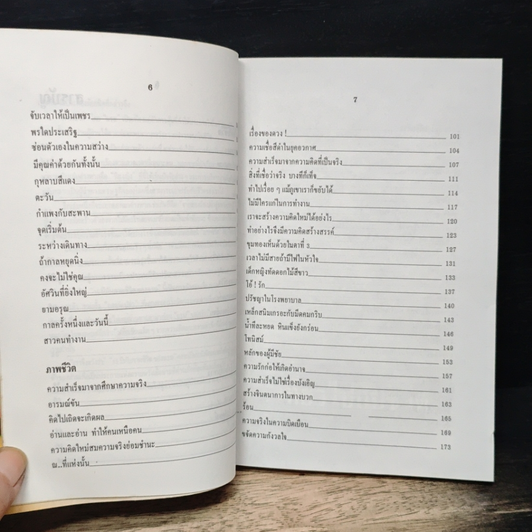 6
จับเวลาให้เป็นเพชร
พรใดประเสริฐ
ซ่อนตัวเองในความสว่าง
มีคุณค่าด้วยกันทั้งนั้น
กุหลาบสีแดง
ตะวัน
กำแพงกับสะพาน
จุดเริ่มต้น
ระหว่างเดินทาง
ถ้ากาลหยุดนิ่ง
คงจะไม่ใช่คุณ
อัศวินที่ยิ่งใหญ่
ยามอรุณ
กาลครั้งหนึ่งและวันนี้
สาวคนทำงาน
ภาพชีวิต
ความสำเร็จมาจากศึกษาความจริง
อารมณ์ขัน
คิดไปเถิดจะเกิดผล
อ่านและอ่าน ทำให้คนเหนือคน
ความคิดใหม่สมความจริงย่อมชำนะ
ณ...ที่แห่งนั้น
7
เรื่องของดวง ! 101
ความเชื่อสีดำในยุคอวกาศ 104
ความสำเร็จมาจากความคิดที่เป็นจริง 107
สิ่งที่เชื่อว่าจริง บางทีก็เท็จ 111
ทำไปเรื่อย ๆ แม้ภูเขาเราก็ขยับได้ 114
ไม่มีใครแก่ในการทำงาน 117
เราจะสร้างความคิดใหม่ได้อย่างไร 120
ทำอย่างไรจึงมีความคิดสร้างสรรค์ 123
ขุมทองเห็นด้วยในตาที่ ๓ 127
เวลาไม่มีสายถ้ามีไฟในหัวใจ 131
เด็กหญิงทัดดอกไม้สีขาว 133
โอ้ ! รัก 135
ปรัชญาในโรงพยาบาล 137
เหล็กสนิมเกรอะกับมีดคมกริบ 140
น้ำทีละหยด หินแข็งยังกร่อน 143
โทนิสม์ 146
หลักของผู้มีชัย 149
ความรักก่อให้เกิดอำนาจ 153
ความสำเร็จไม่ใช่เรื่องบังเอิญ 157
สร้างจินตนาการในทางบวก 160
ร้อน 165
ความจริงในความบิดเบือน 169
ขจัดความกังวลใจ 173